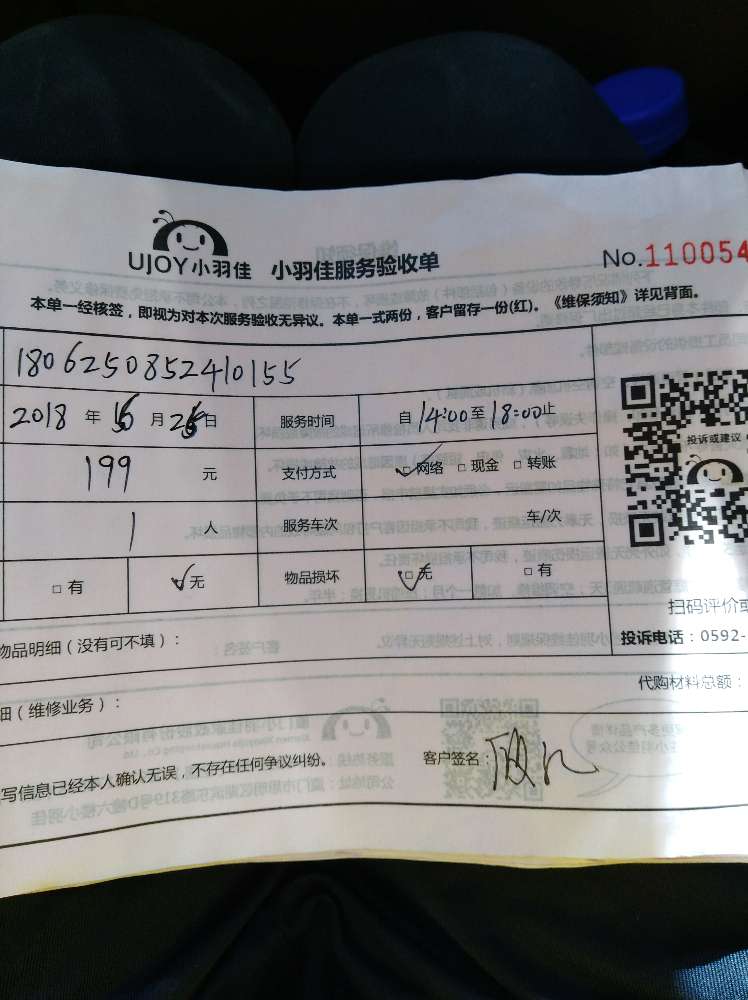 UJOY小羽佳 小羽佳服务验收单
No.110054
本单一经核签，即视为对本次服务验收无异议。本单一式两份，客户留存一份(红)。《维保须知》详见背面。
1806250852410155
2018 年 月 日 服务时间 自 14:00 至 18:00 止
199 元 支付方式 网络 □ 现金 □ 转账
投诉或建议
1 人 服务车次 车/次
□ 有 无 物品损坏 □ 无 □ 有
扫码评价或
物品明细（没有可不填）：
投诉电话：0592-
细（维修业务）：
代购材料总额：
写信息已经本人确认无误，不存在任何争议纠纷。
客户签名：